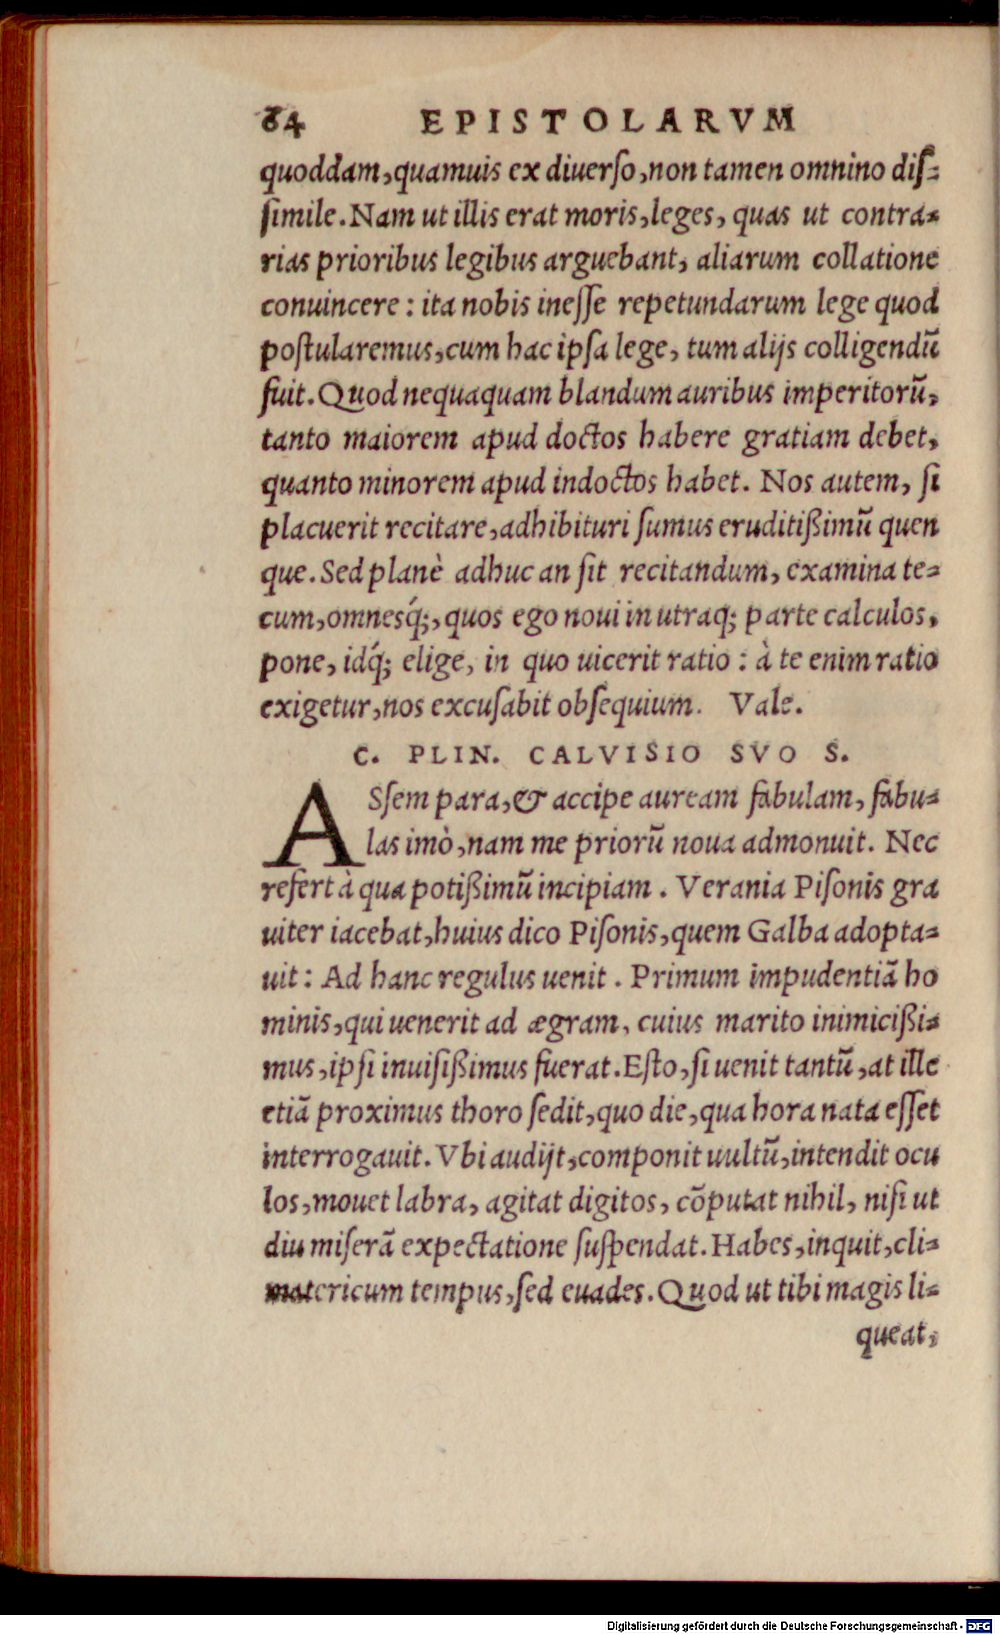 84 EPISTOLARVM
quoddam, quamuis ex diuerſo, non tamen omnino diſ-
ſimile. Nam ut illis erat moris, leges, quas ut contra-
rias prioribus legibus arguebant, aliarum collatione
conuincere: ita nobis ineſſe repetundarum lege quod
poſtularemus, cum hac ipſa lege, tum alijs colligendũ
fuit. Quod nequaquam blandum auribus imperitorũ,
tanto maiorem apud doctos habere gratiam debet,
quanto minorem apud indoctos habet. Nos autem, ſi
placuerit recitare, adhibituri ſumus eruditißimũ quen
que. Sed planè adhuc an ſit recitandum, examina te-
cum, omnesq́;, quos ego noui in utraq; parte calculos,
pone, idq́; elige, in quo uicerit ratio: à te enim ratio
exigetur, nos excuſabit obſequium. Vale.
C. PLIN. CALVISIO SVO S.
ASſem para, & accipe auream fabulam, fabu-
las imò, nam me priorũ noua admonuit. Nec
refert à qua potißimũ incipiam. Verania Piſonis gra
uiter iacebat, huius dico Piſonis, quem Galba adopta-
uit: Ad hanc regulus uenit. Primum impudentiã ho
minis, qui uenerit ad ægram, cuius marito inimicißi-
mus, ipſi inuiſißimus fuerat. Eſto, ſi uenit tantũ, at ille
etiã proximus thoro ſedit, quo die, qua hora nata eſſet
interrogauit. Vbi audijt, componit uultũ, intendit ocu
los, mouet labra, agitat digitos, cõputat nihil, niſi ut
diu miſerã expectatione ſuſpendat. Habes, inquit, cli-
matericum tempus, ſed euades. Quod ut tibi magis li-
queat,
Digitalisierung gefördert durch die Deutsche Forschungsgemeinschaft - DFG